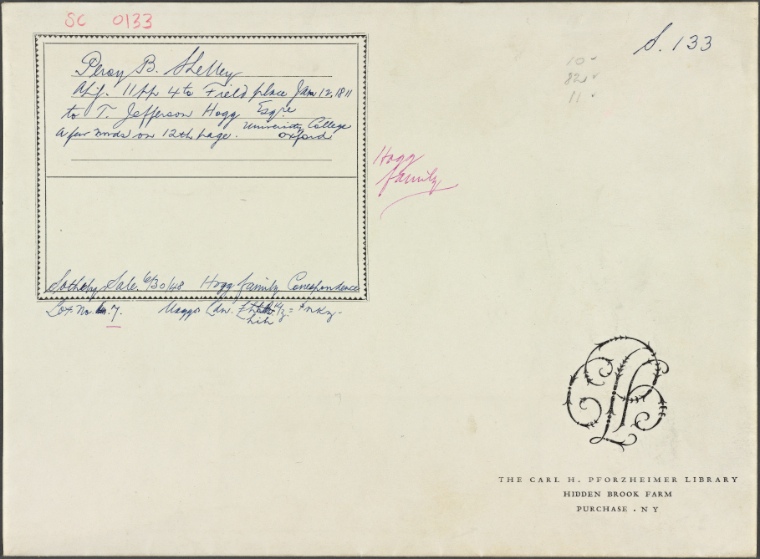 SC 0133
S. 133
10
82
11
Percy B. Shelley
11 pp 4to Field place Jan 12, 1811
to T. Jefferson Hogg Esqre
University College
a few words on 12th page. Oxford
Hogg
family
Sotheby Sale. 6/30/48 Hogg family Correspondence
Lot No. 7. Maggs
THE CARL H. PFORZHEIMER LIBRARY
HIDDEN BROOK FARM
PURCHASE . NY